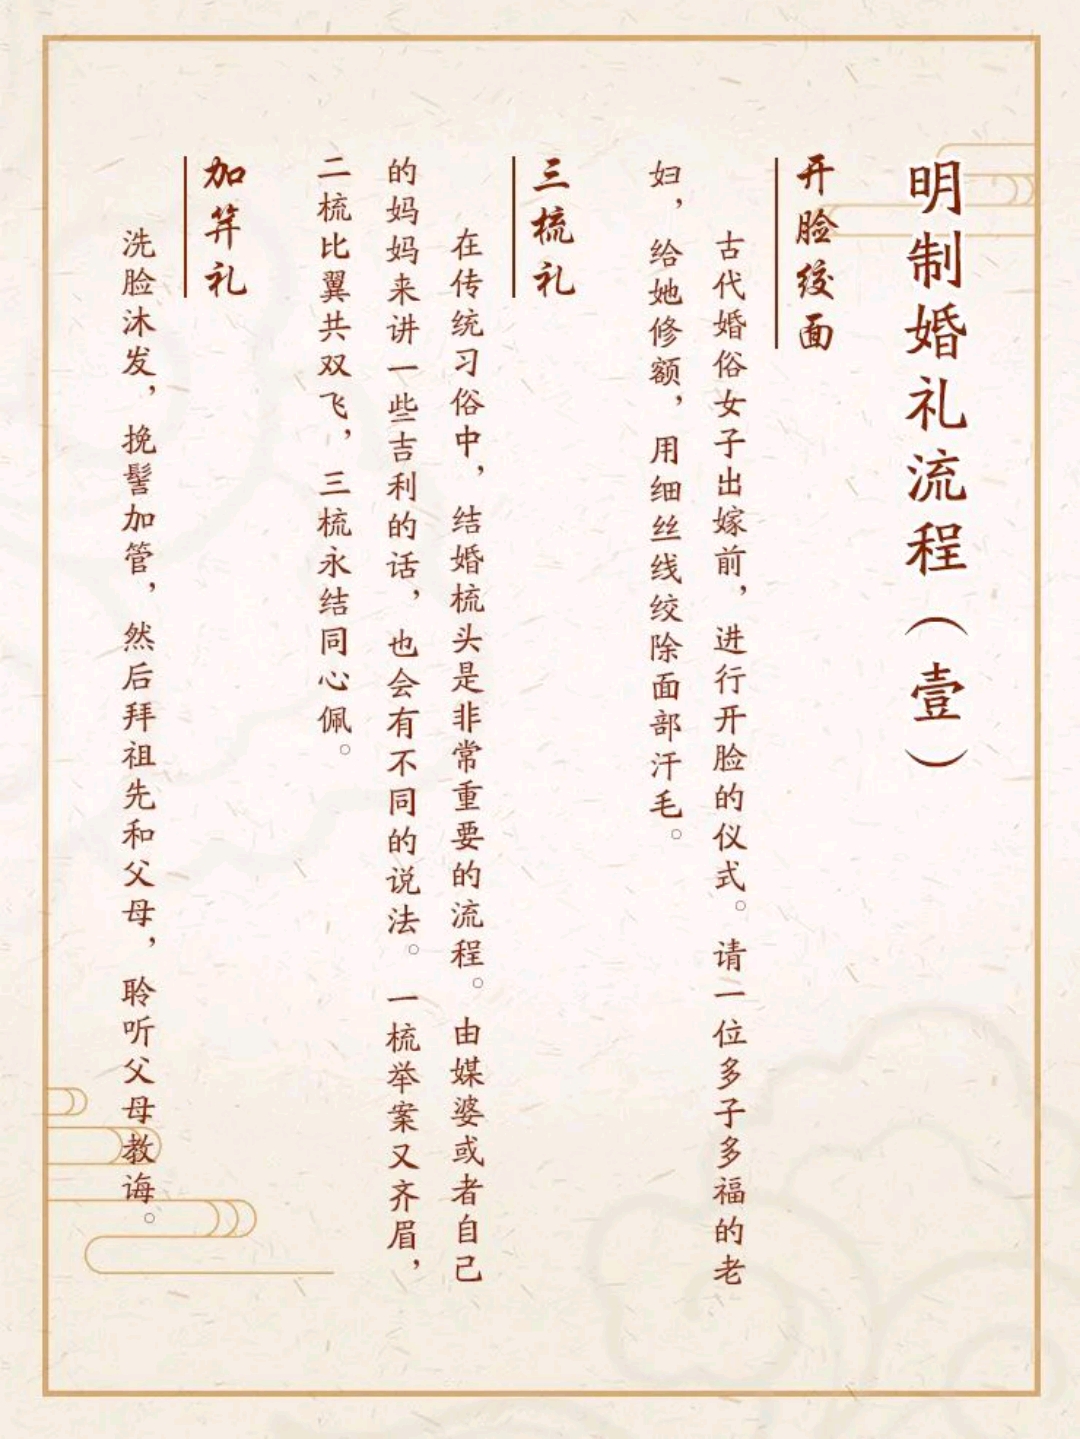 明制婚礼流程（壹）
开脸绞面
古代婚俗女子出嫁前，进行开脸的仪式。请一位多子多福的老
妇，给她修额，用细丝线绞除面部汗毛。
三梳礼
在传统习俗中，结婚梳头是非常重要的流程。由媒婆或者自己
的妈妈来讲一些吉利的话，也会有不同的说法。一梳举案又齐眉，
二梳比翼共双飞，三梳永结同心佩。
加笄礼
洗脸沐发，挽髻加管，然后拜祖先和父母，聆听父母教诲。